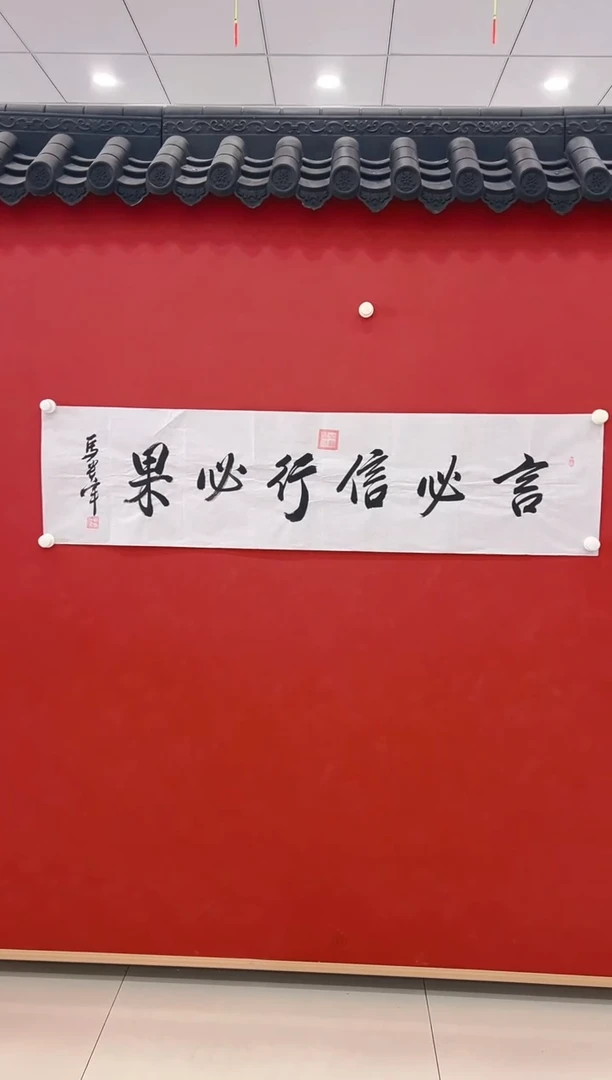 言必信行必果